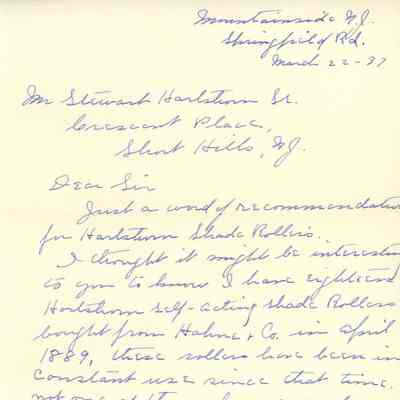 Mountainside N.J.
Springfield Rd.
March 22-37
Mr Stewart Hartshorn Sr.
Crescent Place,
Short Hills, N.J.
Dear Sir
Just a word of recommendation
for Hartshorn Shade Rollers.
I thought it might be interesting
to you to know I have eighteen
Hartshorn self-acting shade Rollers
bought from Hahne & Co. in April
1889, these rollers have been in
constant use since that time.